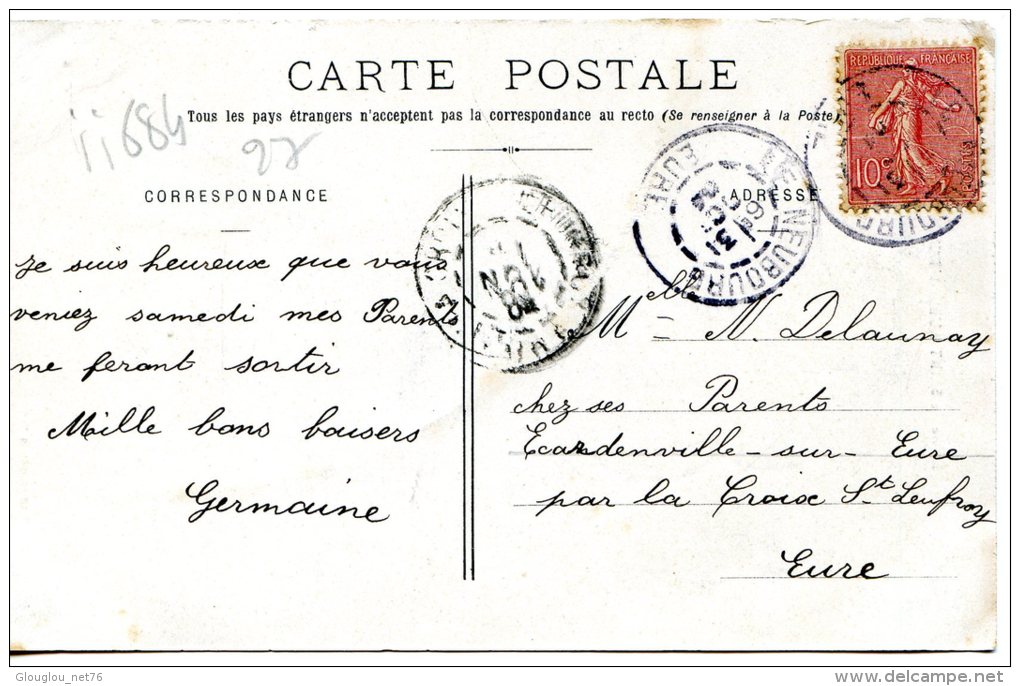 CARTE POSTALE
Tous les pays étrangers n'acceptent pas la correspondance au recto (Se renseigner à la Poste)
ii684
27
CORRESPONDANCE
Je suis heureuse que vous
veniez samedi mes Parents
me feront sortir
Mille bons baisers
Germaine
ADRESSE
Melle N. Delaunay
chez ses Parents
Ecardenville-sur-Eure
par la Croix St Leufroy
Eure
REPUBLIQUE FRANÇAISE
10c
POSTES
LE NEUBOURG
EURE
Glouglou_net76
www.delcampe.net